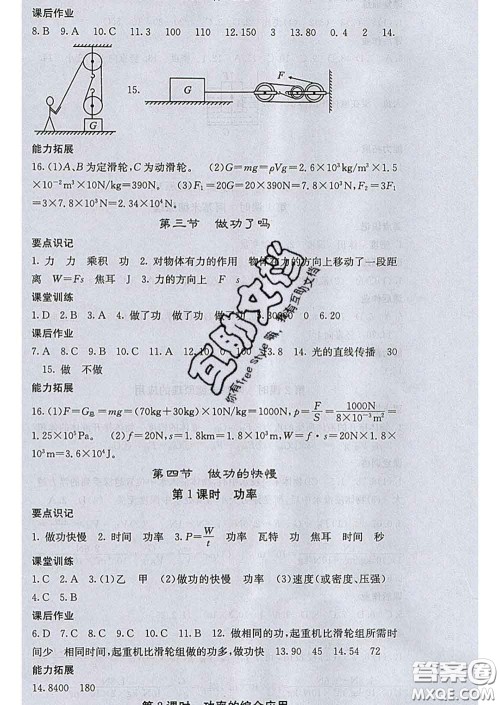 课后作业
8.B 9.A 10.C 11.3 100 110 12.150 3 13.80 0.4 2 14.
G
15.
G
F
能力拓展
16.(1)A、B为定滑轮,C为动滑轮。 (2)G=mg=ρVg=2.6×10³kg/m³×1.5
×10⁻²m³×10N/kg=390N。 (3)F₁=20G=20×390N=7.8×10³N,F=3F₁
=3×7.8×10³N=2.34×10⁴N。
第三节 做功了吗
要点识记
1.力 力 乘积 功 2.对物体有力的作用 物体在力的方向上移动了一段距
离 W=Fs 焦耳 J 3.力的方向上 F s
课堂训练
1.D 2.B 3.A 4.做了功 做了功 做了功 0 6.20
课后作业
7.A 8.C 9.B 10.C 11.A 12.10 0 100 13.8 14.光的直线传播 30
15.做 不做
能力拓展
16.(1)F=G总=(70kg+30kg)×10N/kg=1000N,p=F/S=1000N/8×10⁻³m²=
1.25×10⁵Pa。 (2)f=20N,s=1.8km=1.8×10³m,W=fs=20N×1.8×
10³m=3.6×10⁴J。
第四节 做功的快慢
第1课时 功率
要点识记
1.做功快慢 2.时间 功率 3.P=W/t 功率 瓦特 功 焦耳 时间 秒
课堂训练
1.C 2.A 3.(1)乙 甲 (2)做功的快慢 功率 (3)速度(或密度、压强)
4.C 5.B
课后作业
6.D 7.C 8.C 9.D 10.B 11.A 12.做相同的功,起重机比滑轮组所需时
间少 相同时间,起重机比滑轮组做的功多,做功快 13.90 45 14.54 72
能力拓展
14.8400 180
第2课时 功率的综合应用
互助文档
你有free style 我有互助文档
答案圈
MXQE.COM